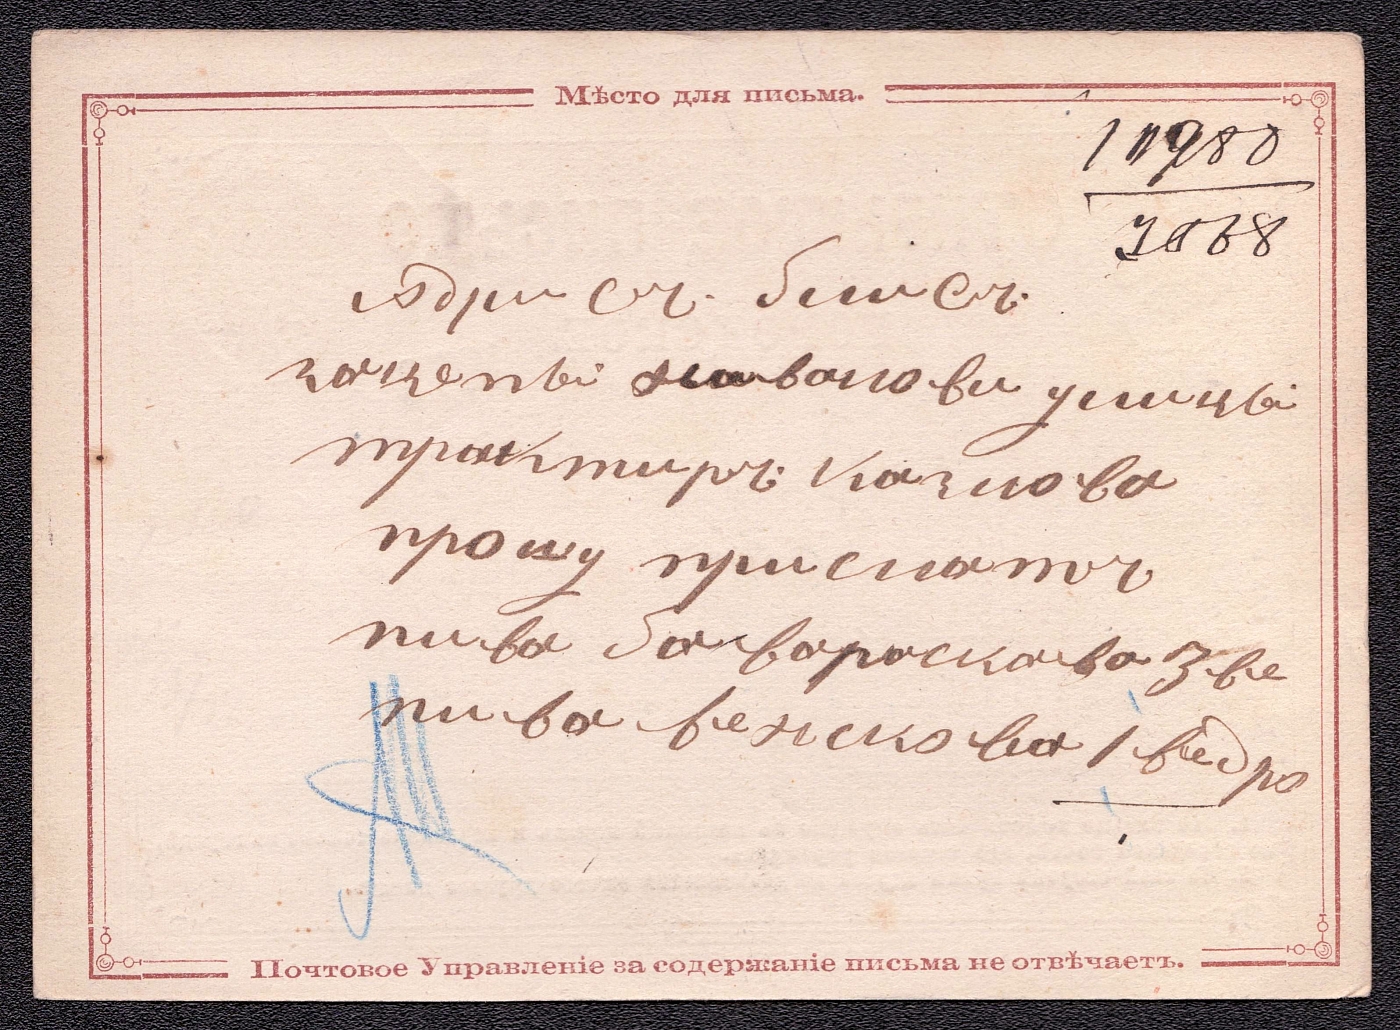 Мѣсто для письма.
11980
7568
Адри Съ. близъ
зацепы на валови улицы
трактиръ Казлова
прошу прислать
пива баварскава 3 ве
пива венскова 1 ведро
Почтовое Управленіе за содержаніе письма не отвѣчаетъ.